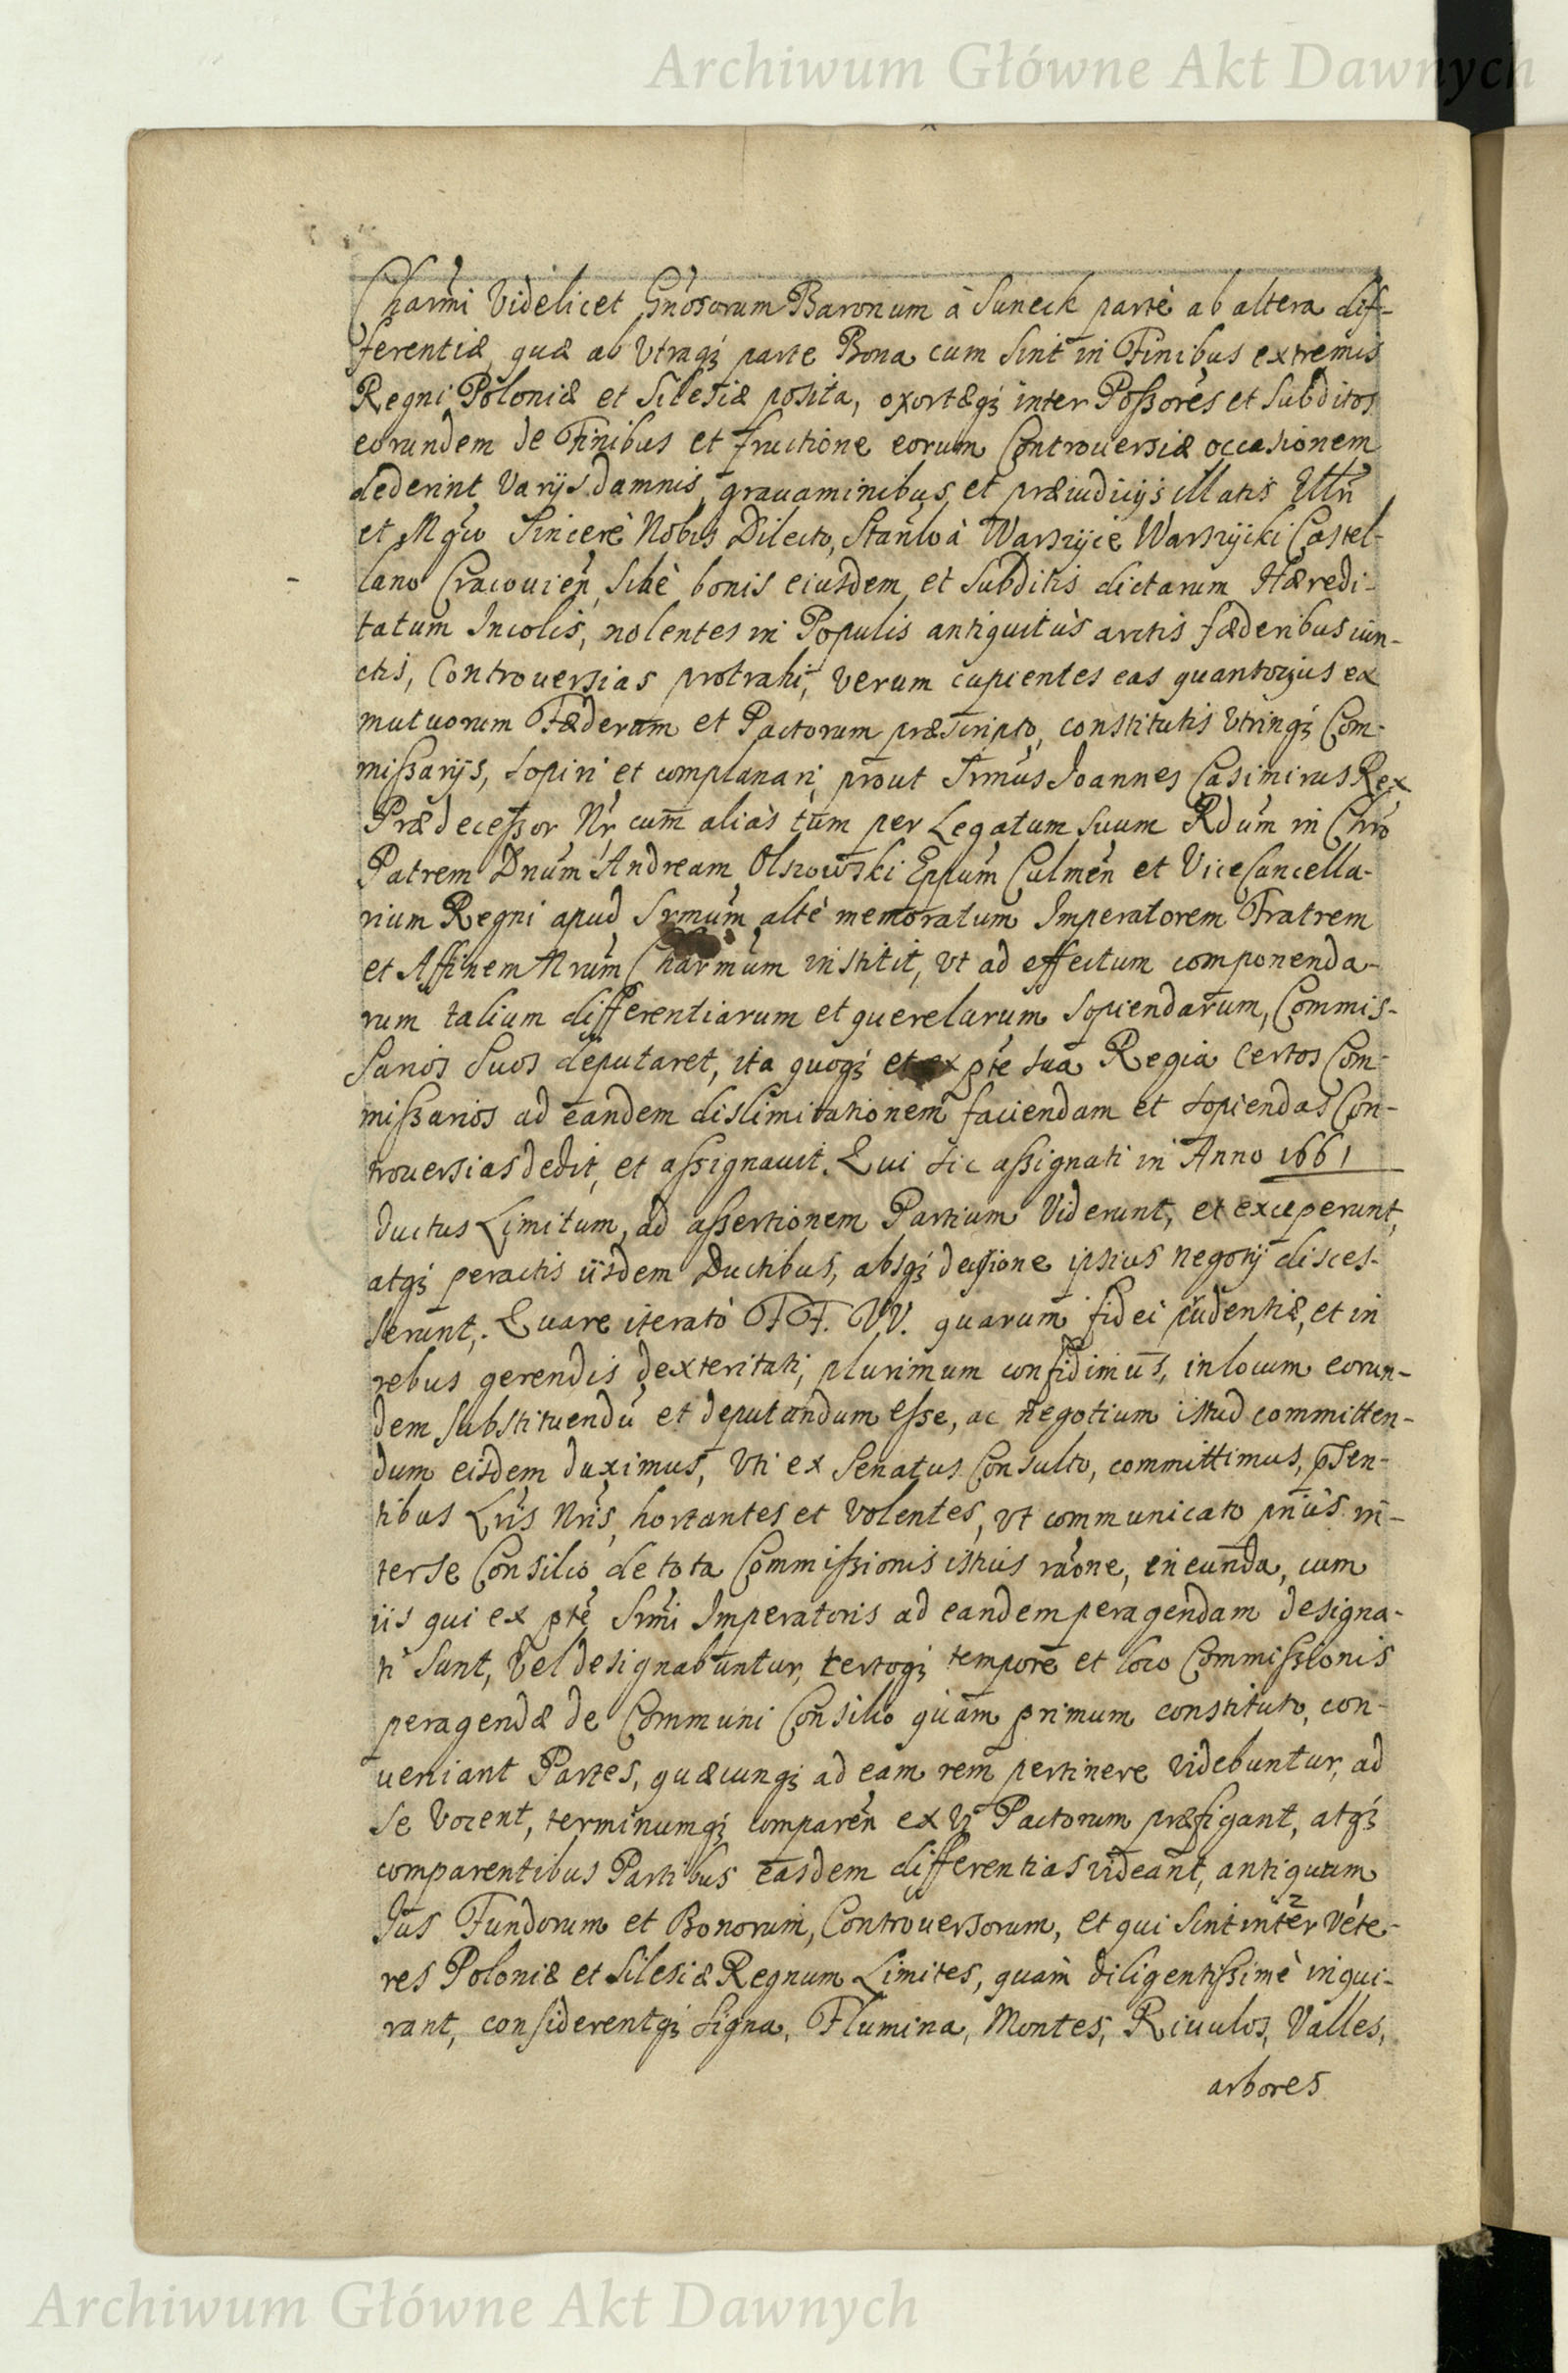 Archiwum Główne Akt Dawnych
Charmi Videlicet Gnosorum Baronum à Suneck parte ab altera dif-
ferentiæ, quæ ab Utraqꝫ parte Bona cum sint in Finibus extremis
Regni Poloniæ et Silesiæ posita, exortæqꝫ inter Poßores et Subditos
eorundem de Finibus et fructione eorum Controuersiæ occasionem
dederint Varijs damnis, grauaminibus et præiudicijs illatis Illri
et Mgco Sincerè Nobis Dilecto, Stanlo à Warszyce Warszycki Castel-
lano Cracouien, sibè bonis eiusdem, et Subditis dictarum Hæredi-
tatum Incolis, nolentes in Populis antiquitùs arctis fæderibus iun-
ctis, Controuersias protrahi, Verum cupientes eas quantocyus ex
mutuorum Fæderum et Pactorum præscripto, constitutis Utrinqꝫ Com-
mißarijs, sopiri et complanari, prout Srmus Joannes Casimirus Rex
Prædeceßor Nr cum aliàs tum per Legatum suum Rdum in Chro
Patrem Dnum Andream Olszowski Eppum Culmen et ViceCancella-
rium Regni apud Srmum altè memoratum Imperatorem Fratrem
et Affinem Nrum Charmum institit, ut ad effectum componenda-
rum talium differentiarum et querelarum sopiendarum, Commis-
sarios suos deputaret, ita quoqꝫ et ex pte sua Regia Certos Com-
mißarios ad eandem dislimitationem faciendam et sopiendas Con-
trouersias dedit, et aßignauit. Qui sic aßignati in Anno 1661
Ductus Limitum, ad aßertionem Partium Viderunt, et exceperunt,
atqꝫ peractis iisdem Ductibus, absqꝫ decisione ipsius negotij disces-
serunt. Quare iteratò FF. VV. quarum fidei prudentiæ, et in
rebus gerendis dexteritati, plurimum confidimus, in locum eorun-
dem substituendu et deputandum esse, ac negotium istud committen-
dum eisdem duximus, Uti ex Senatus Consulto, committimus, pnsen-
tibus Lris Nris, hortantes et Volentes, ut communicato priùs in-
ter se Consilio, de tota Commißionis istius raone, ineunda, cum
iis qui ex pte Srmi Imperatoris ad eandem peragendam designa-
ti sunt, Vel designabuntur, certoqꝫ tempore et loco Commißionis
peragendæ de Communi Consilio quam primum constituto, con-
ueniant Partes, quæcunqꝫ ad eam rem pertinere Videbuntur, ad
se Vocent, terminumqꝫ comparen ex Vi Pactorum præfigant, atqꝫ
comparentibus Partibus easdem differentias videant, antiquum
Jus Fundorum et Bonorum, Controuersorum, et qui sint inter Vete-
res Poloniæ et Silesiæ Regnum Limites, quam diligentißimè inqui-
rant, considerentqꝫ signa, Flumina, Montes, Riuulos, Valles,
arbores
Archiwum Główne Akt Dawnych